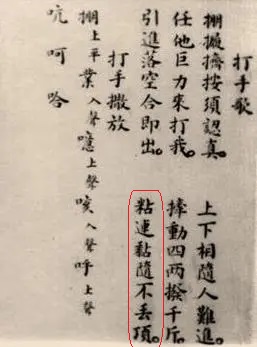 打手歌
掤攦擠按須認真。 上下相隨人難進。
任他巨力來打我。 動四兩撥千斤。
引進落空合即出。 粘連黏隨不丟頂。
打手撒放
掤上平 業入聲 噫上聲 咳入聲 呼上聲
吭 呵 哈